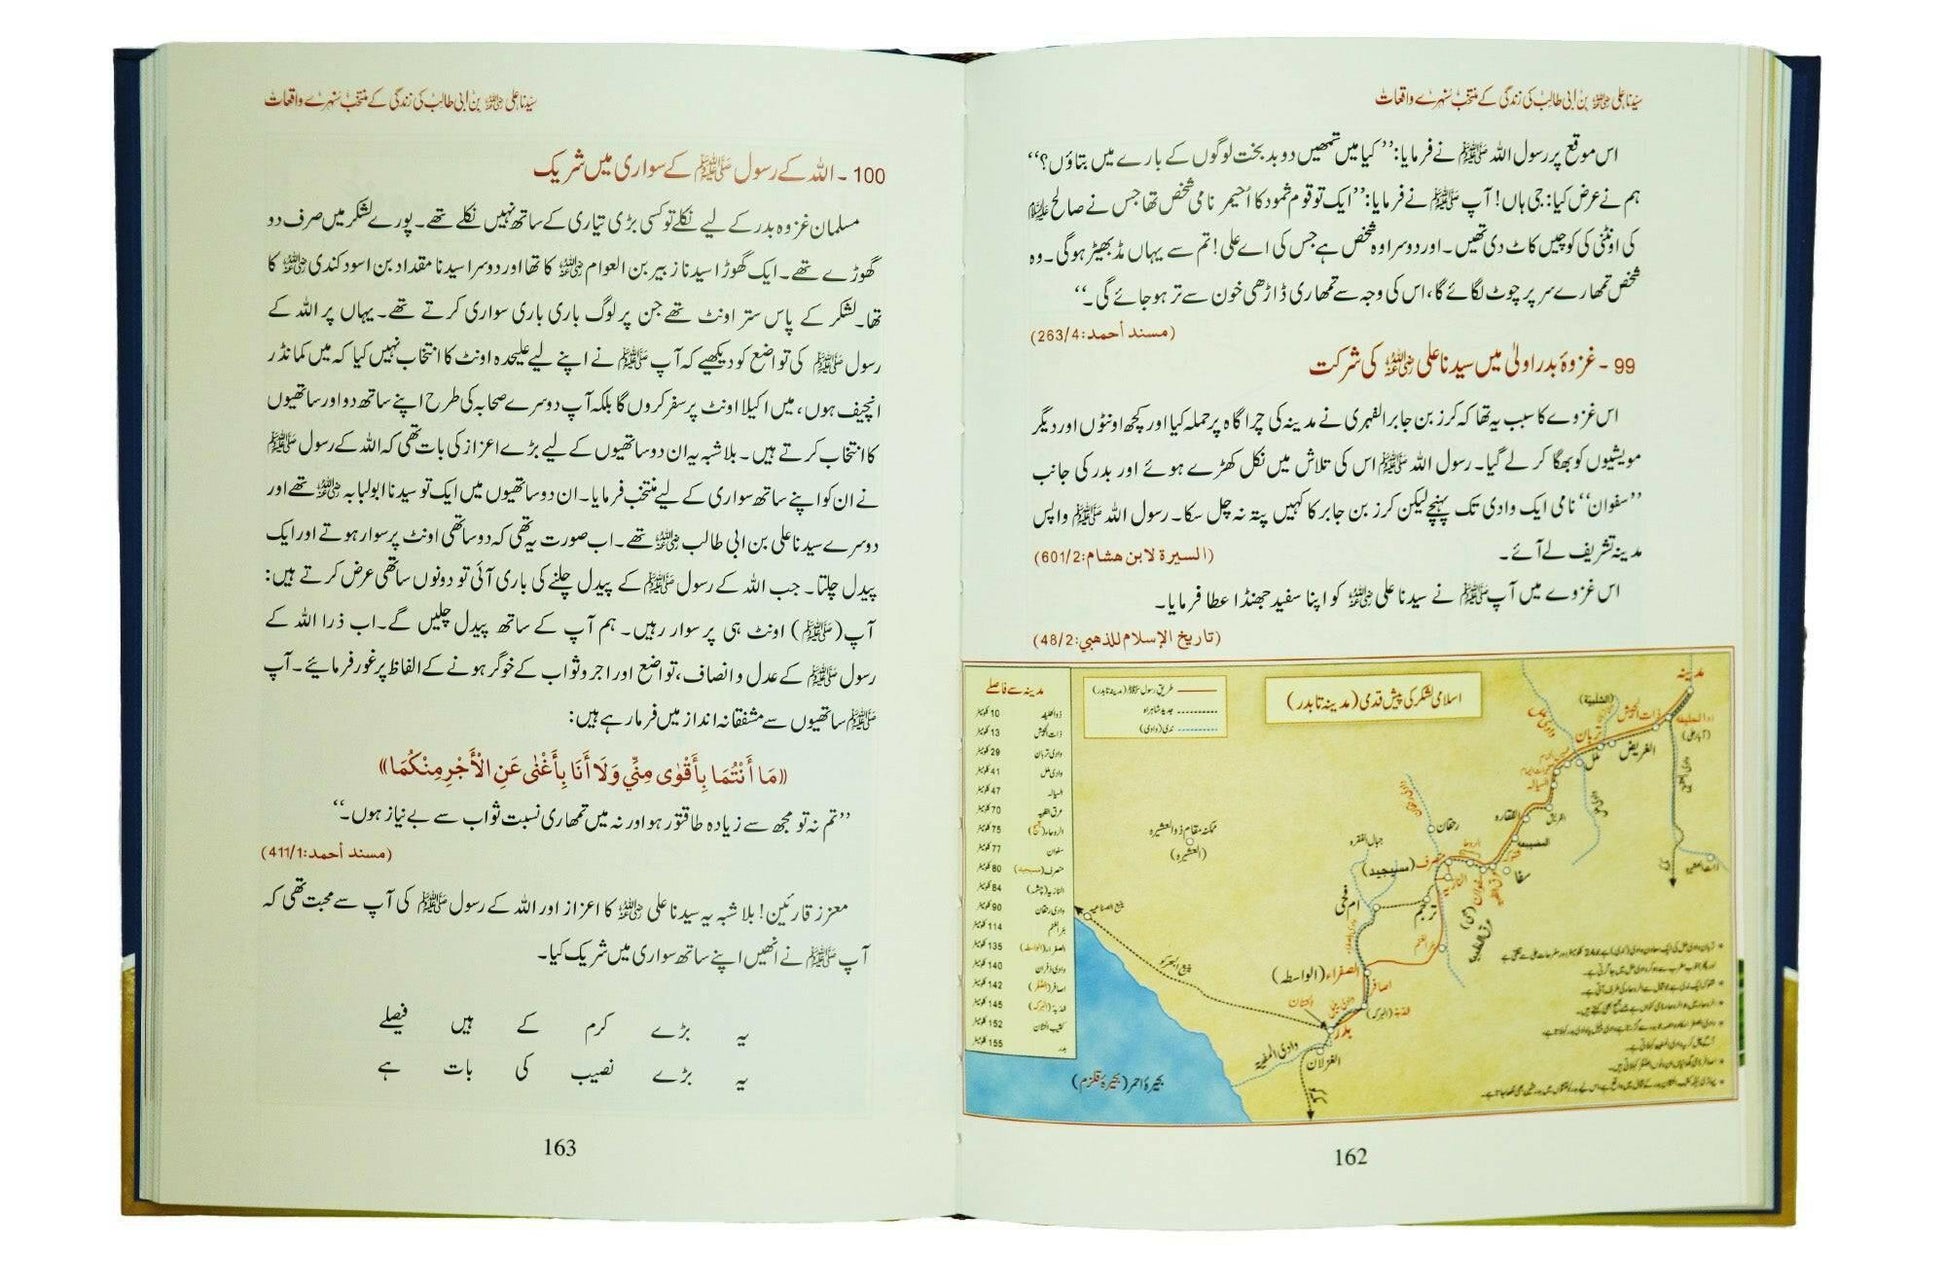 سیدنا علی رضی اللہ عنہ بن ابی طالب کی زندگی کے منتخب سنہرے واقعات
اس موقع پر رسول اللہ ﷺ نے فرمایا: ’’کیا میں تمھیں دو بدبخت لوگوں کے بارے میں بتاؤں؟‘‘
ہم نے عرض کیا: جی ہاں! آپ ﷺ نے فرمایا: ’’ایک تو قوم ثمود کا اُحیمر نامی شخص تھا جس نے صالح علیہ السلام
کی اونٹنی کی کوچیں کاٹ دی تھیں۔ اور دوسرا وہ شخص ہے جس کی اے علی! تم سے یہاں مڈبھیڑ ہوگی۔ وہ
شخص تمھارے سر پر چوٹ لگائے گا، اس کی وجہ سے تمھاری ڈاڑھی خون سے تر ہو جائے گی۔‘‘
(مسند أحمد: 263/4)
99 - غزوۂ بدر اولیٰ میں سیدنا علی رضی اللہ عنہ کی شرکت
اس غزوے کا سبب یہ تھا کہ کرز بن جابر الفہری نے مدینہ کی چراگاہ پر حملہ کیا اور کچھ اونٹوں اور دیگر
مویشیوں کو بھگا کر لے گیا۔ رسول اللہ ﷺ اس کی تلاش میں نکل کھڑے ہوئے اور بدر کی جانب
’’سفوان‘‘ نامی ایک وادی تک پہنچے لیکن کرز بن جابر کا کہیں پتہ نہ چل سکا۔ رسول اللہ ﷺ واپس
مدینہ تشریف لے آئے۔ (السیرة لابن هشام: 601/2)
اس غزوے میں آپ ﷺ نے سیدنا علی رضی اللہ عنہ کو اپنا سفید جھنڈا عطا فرمایا۔
(تاریخ الإسلام للذهبي: 48/2)
اسلامی لشکر کی پیش قدمی (مدینہ تا بدر)
طریق رسول ﷺ (مدینہ تا بدر)
جدید شاہراہ
ندی (وادی)
مدینہ سے فاصلے
ذوالحلیفہ 10 کلومیٹر
ذات الجیش 13 کلومیٹر
وادی تربان 29 کلومیٹر
وادی ملل 41 کلومیٹر
السیالہ 47 کلومیٹر
عرق الظبیہ 70 کلومیٹر
75 کلومیٹر
77 کلومیٹر
منصرف (مسیجید) 80 کلومیٹر
84 کلومیٹر
وادی رحقان 90 کلومیٹر
114 کلومیٹر
الصفراء (الواسطہ) 135 کلومیٹر
وادی ذفران 140 کلومیٹر
142 کلومیٹر
145 کلومیٹر
152 کلومیٹر
بدر 155 کلومیٹر
مدینہ
ذات الجیش
تربان
ملل
العریض
السیالہ
رحقان
منصرف (مسیجید)
النازیہ
سفا
ام فحی
الصفراء (الواسطہ)
بدر
الغزلان
ینبع البحر کو
مکہ
بحیرۂ احمر (بحیرۂ قلزم)
ممکنہ مقام ذوالعشیرہ
(العشیرہ)
162
سیدنا علی رضی اللہ عنہ بن ابی طالب کی زندگی کے منتخب سنہرے واقعات
100 - اللہ کے رسول ﷺ کے سواری میں شریک
مسلمان غزوہ بدر کے لیے نکلے تو کسی بڑی تیاری کے ساتھ نہیں نکلے تھے۔ پورے لشکر میں صرف دو
گھوڑے تھے۔ ایک گھوڑا سیدنا زبیر بن العوام رضی اللہ عنہ کا تھا اور دوسرا سیدنا مقداد بن اسود کندی رضی اللہ عنہ کا
تھا۔ لشکر کے پاس ستر اونٹ تھے جن پر لوگ باری باری سواری کرتے تھے۔ یہاں پر اللہ کے
رسول ﷺ کی تواضع کو دیکھیے کہ آپ ﷺ نے اپنے لیے علیحدہ اونٹ کا انتخاب نہیں کیا کہ میں کمانڈر
انچیف ہوں، میں اکیلا اونٹ پر سفر کروں گا بلکہ آپ دوسرے صحابہ کی طرح اپنے ساتھ دو اور ساتھیوں
کا انتخاب کرتے ہیں۔ بلاشبہ یہ ان دو ساتھیوں کے لیے بڑے اعزاز کی بات تھی کہ اللہ کے رسول ﷺ
نے ان کو اپنے ساتھ سواری کے لیے منتخب فرمایا۔ ان دو ساتھیوں میں ایک تو سیدنا ابولبابہ رضی اللہ عنہ تھے اور
دوسرے سیدنا علی بن ابی طالب رضی اللہ عنہ تھے۔ اب صورت یہ تھی کہ دو ساتھی اونٹ پر سوار ہوتے اور ایک
پیدل چلتا۔ جب اللہ کے رسول ﷺ کے پیدل چلنے کی باری آئی تو دونوں ساتھی عرض کرتے ہیں:
آپ (ﷺ) اونٹ ہی پر سوار رہیں۔ ہم آپ کے ساتھ پیدل چلیں گے۔ اب ذرا اللہ کے
رسول ﷺ کے عدل و انصاف، تواضع اور اجر و ثواب کے خوگر ہونے کے الفاظ پر غور فرمائیے۔ آپ
ﷺ ساتھیوں سے مشفقانہ انداز میں فرما رہے ہیں:
«مَا أَنْتُمَا بِأَقْوٰی مِنِّي وَلَا أَنَا بِأَغْنٰی عَنِ الْأَجْرِ مِنْكُمَا»
’’تم نہ تو مجھ سے زیادہ طاقتور ہو اور نہ میں تمھاری نسبت ثواب سے بے نیاز ہوں۔‘‘
(مسند أحمد: 411/1)
معزز قارئین! بلاشبہ یہ سیدنا علی رضی اللہ عنہ کا اعزاز اور اللہ کے رسول ﷺ کی آپ سے محبت تھی کہ
آپ ﷺ نے انھیں اپنے ساتھ سواری میں شریک کیا۔
یہ بڑے کرم کے ہیں فیصلے
یہ بڑے نصیب کی بات ہے
163